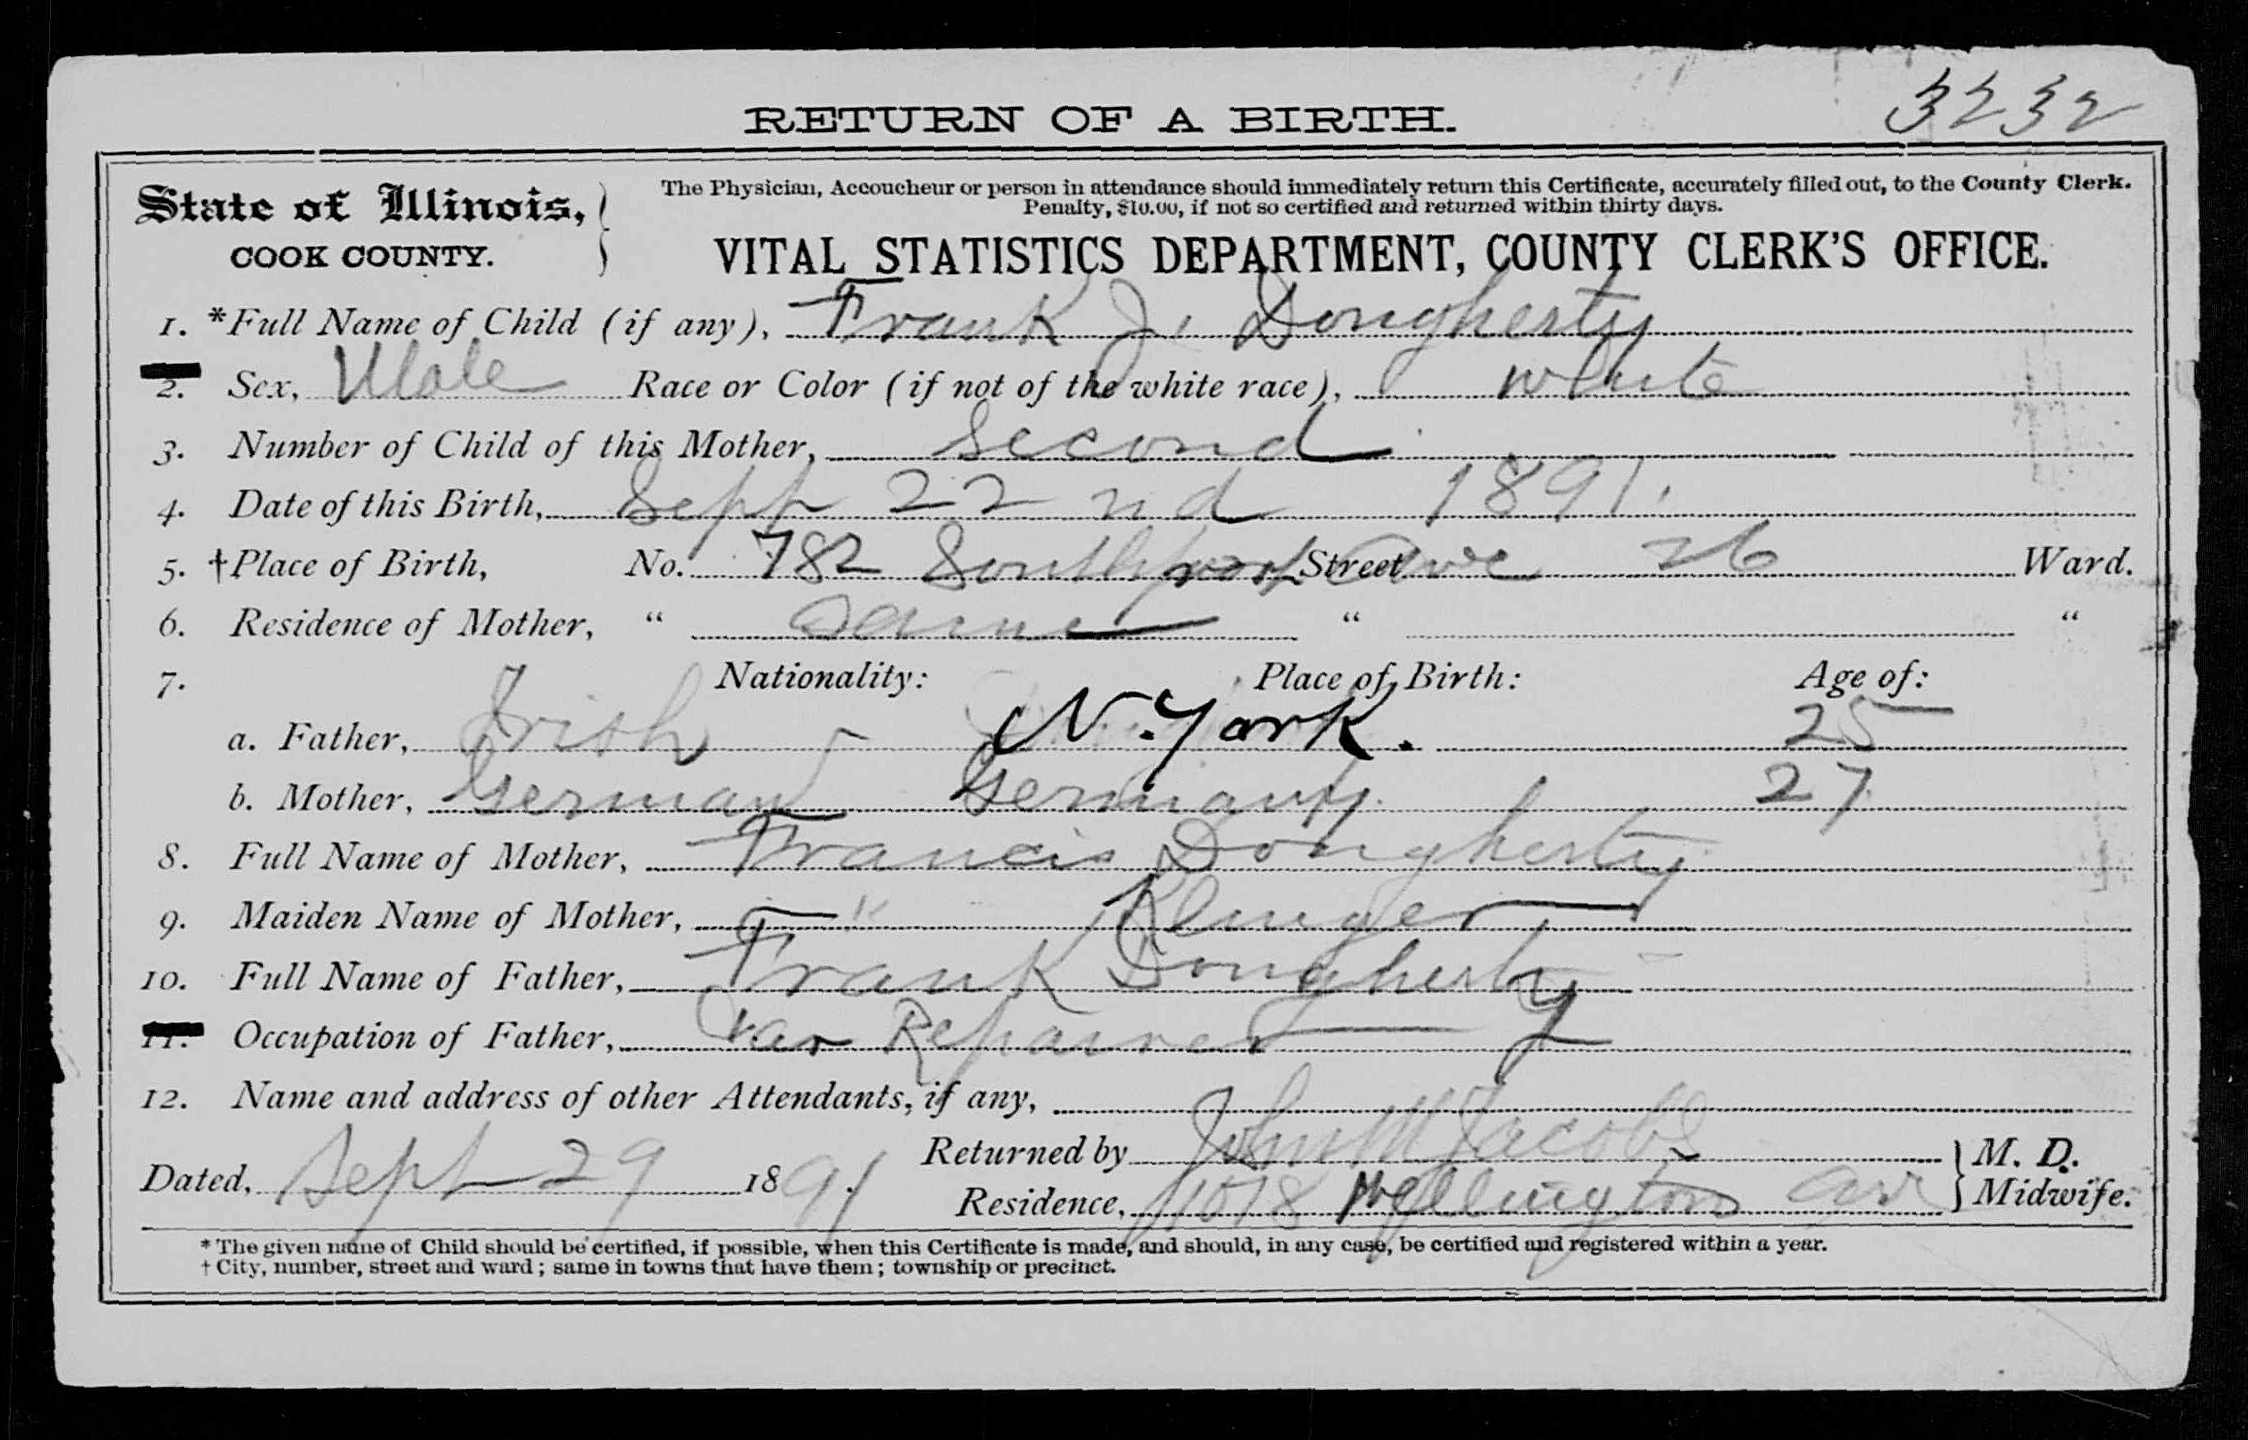 3232
RETURN OF A BIRTH.
State of Illinois,
COOK COUNTY.
The Physician, Accoucheur or person in attendance should immediately return this Certificate, accurately filled out, to the County Clerk.
Penalty, $10.00, if not so certified and returned within thirty days.
VITAL STATISTICS DEPARTMENT, COUNTY CLERK'S OFFICE.
1. *Full Name of Child (if any), Frank J. Dougherty
2. Sex, Male Race or Color (if not of the white race), White
3. Number of Child of this Mother, Second
4. Date of this Birth, Sept 22nd 1891.
5. †Place of Birth, No. 782 Southport Street Ave 26 Ward.
6. Residence of Mother, " Same " "
7. Nationality: Place of Birth: Age of:
a. Father, Irish N. York. 25
b. Mother, German Germany. 27
8. Full Name of Mother, Francis Dougherty
9. Maiden Name of Mother, F " Klinger
10. Full Name of Father, Frank Dougherty
11. Occupation of Father, Car Repairer
12. Name and address of other Attendants, if any,
Returned by John M Jacobs M. D.
Dated, Sept 29 1891.
Residence, 1018 Wellington av Midwife.
* The given name of Child should be certified, if possible, when this Certificate is made, and should, in any case, be certified and registered within a year.
† City, number, street and ward; same in towns that have them; township or precinct.